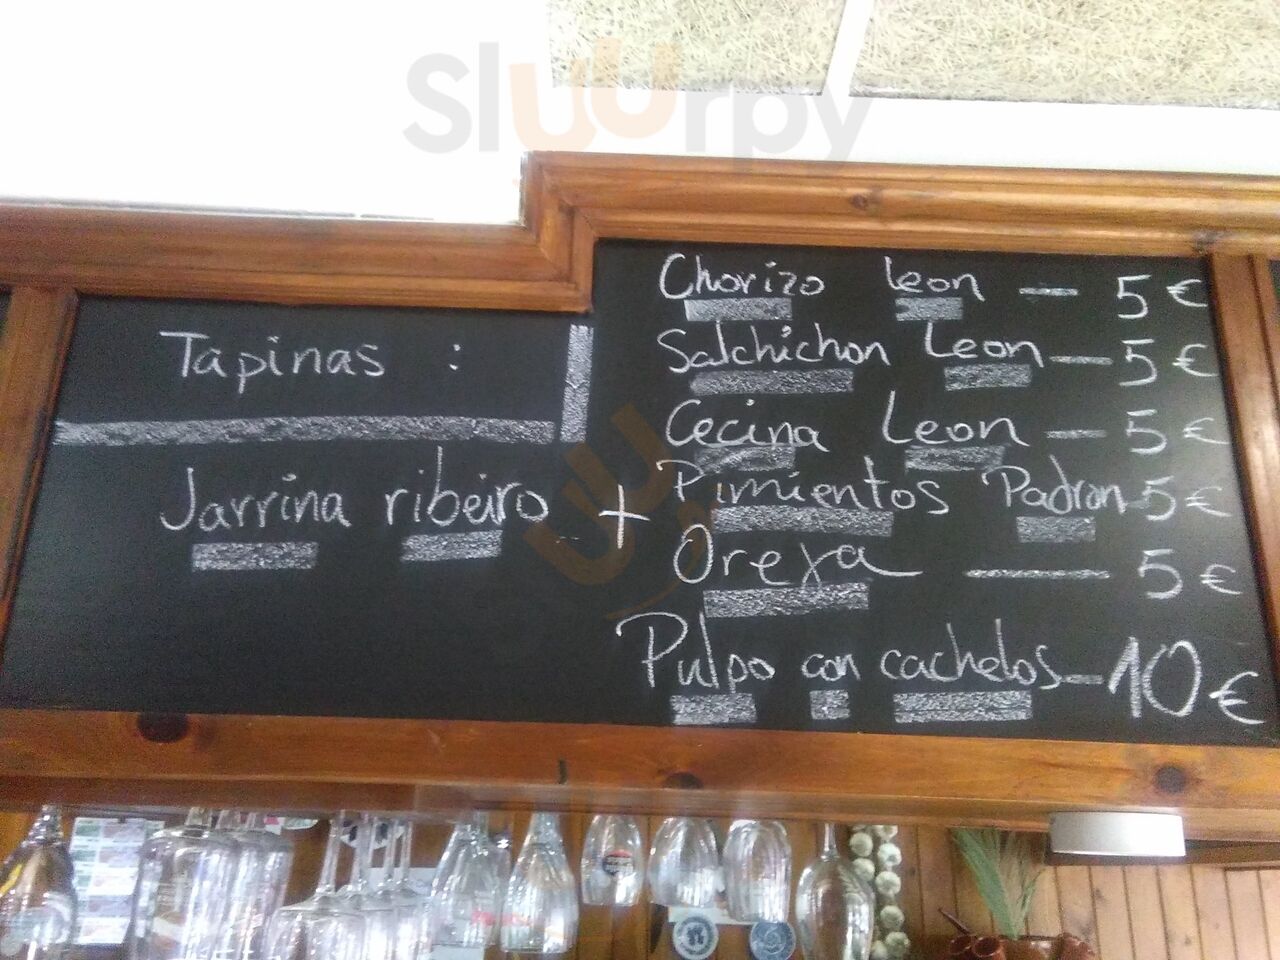 Sluurpy
Tapinas :
Jarrina ribeiro +
Chorizo Leon — 5 €
Salchichon Leon — 5 €
Cecina Leon — 5 €
Pimientos Padron - 5 €
Oreja — 5 €
Pulpo con cachelos - 10 €